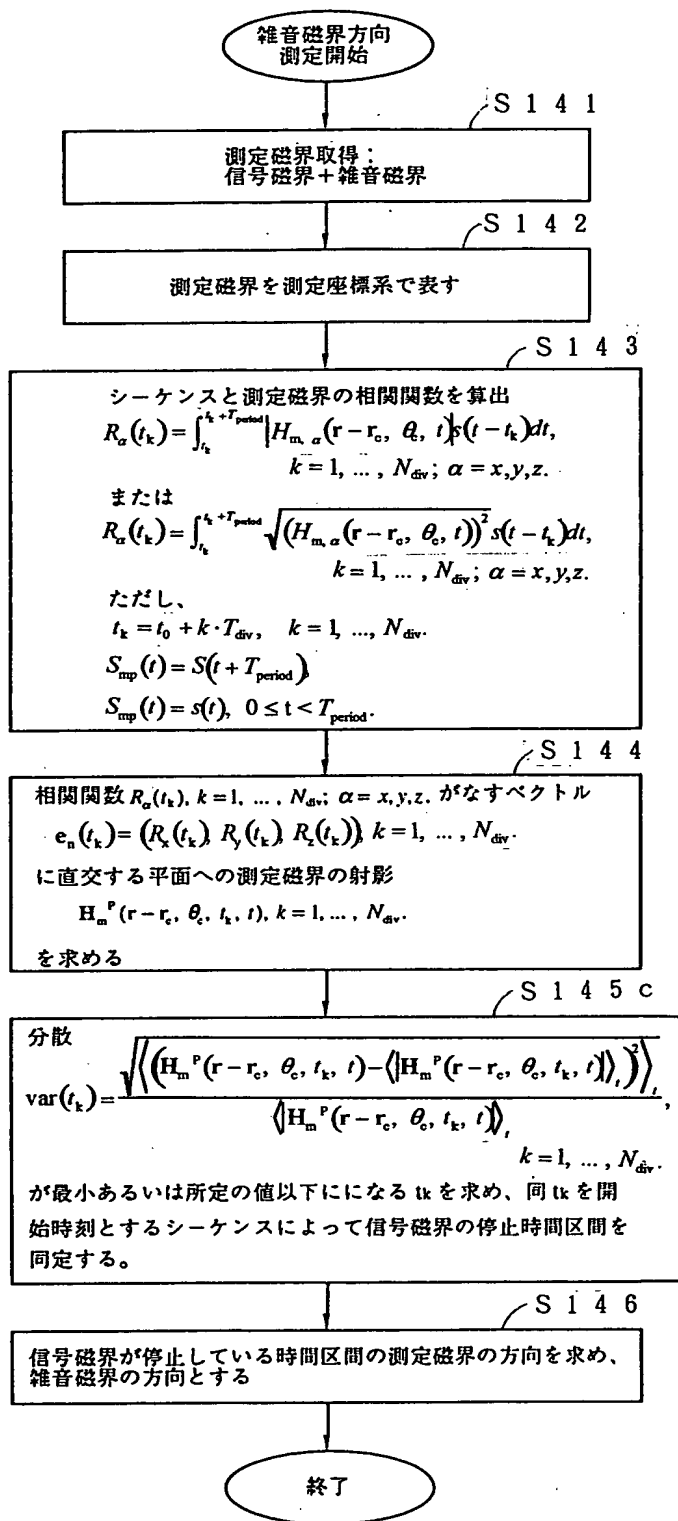 雑音磁界方向
測定開始
S141
測定磁界取得:
信号磁界+雑音磁界
S142
測定磁界を測定座標系で表す
S143
シーケンスと測定磁界の相関関数を算出
R_α(t_k) = ∫_{t_k}^{t_k+T_period} |H_{m, α}(r−r_c, θ_c, t)|s(t−t_k)dt,
k = 1, ... , N_div; α = x,y,z.
または
R_α(t_k) = ∫_{t_k}^{t_k+T_period} √((H_{m, α}(r−r_c, θ_c, t))^2) s(t−t_k)dt,
k = 1, ... , N_div; α = x,y,z.
ただし、
t_k = t_0 + k·T_div, k = 1, ..., N_div.
S_mp(t) = S(t + T_period),
S_mp(t) = s(t), 0 ≤ t < T_period.
S144
相関関数 R_α(t_k), k = 1, ... , N_div; α = x,y,z. がなすベクトル
e_n(t_k) = (R_x(t_k), R_y(t_k), R_z(t_k)), k = 1, ... , N_div.
に直交する平面への測定磁界の射影
H_m^P(r−r_c, θ_c, t_k, t), k = 1, ... , N_div.
を求める
S145c
分散
var(t_k) = √⟨(H_m^P(r−r_c, θ_c, t_k, t)−⟨|H_m^P(r−r_c, θ_c, t_k, t)|⟩_t)^2⟩_t / ⟨|H_m^P(r−r_c, θ_c, t_k, t)|⟩_t,
k = 1, ... , N_div.
が最小あるいは所定の値以下にになる tk を求め、同 tk を開
始時刻とするシーケンスによって信号磁界の停止時間区間を
同定する。
S146
信号磁界が停止している時間区間の測定磁界の方向を求め、
雑音磁界の方向とする
終了